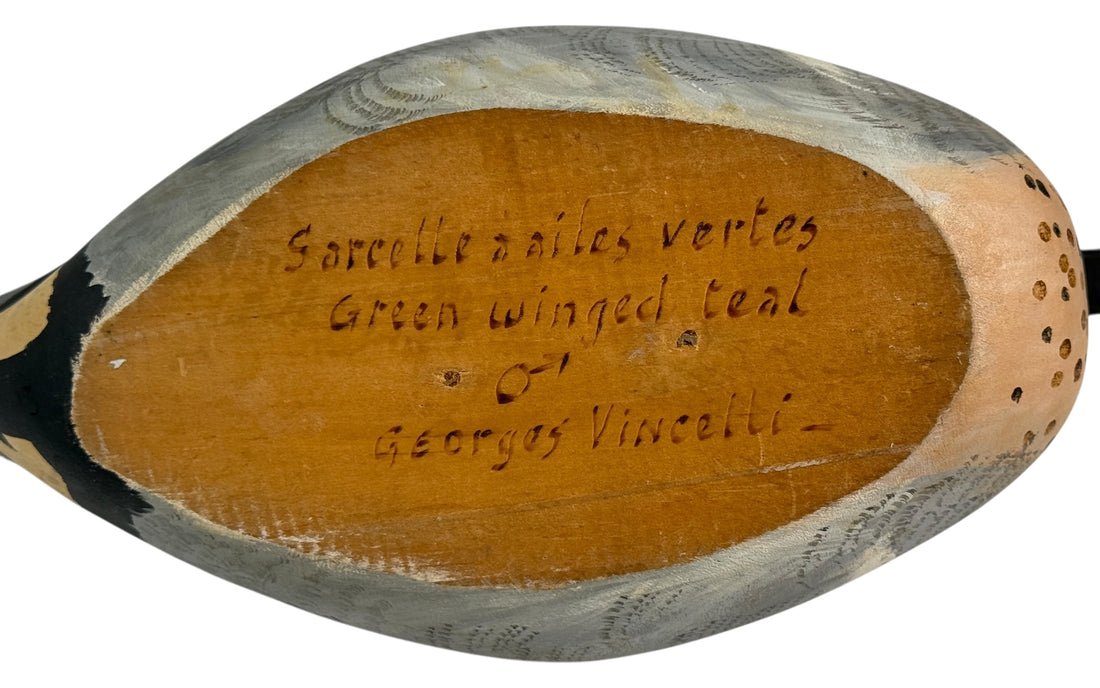 Sarcelle à ailes vertes
Green winged teal
♂
Georges Vincelli -